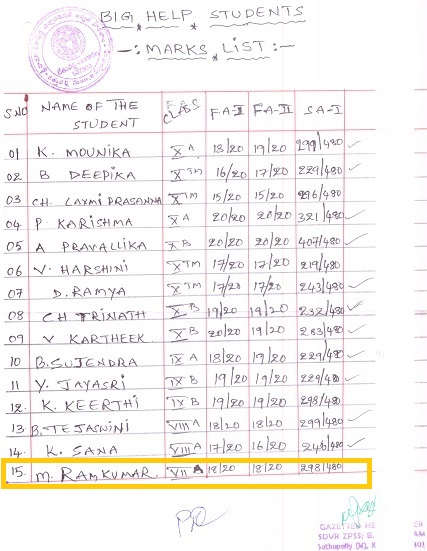 BIG HELP STUDENTS
-: MARKS LIST :-
S.NO NAME OF THE STUDENT CLASS FA-I FA-II SA-I
01 K. MOUNIKA X A 18/20 19/20 299/480
02 B DEEPIKA X TM 16/20 17/20 229/480
03 CH LAXMI PRASANNA X TM 15/20 15/20 296/480
04 P KARISHMA X A 20/20 20/20 321/480
05 A PRAVALLIKA X B 20/20 20/20 407/480
06 V. HARSHINI X TM 17/20 17/20 219/480
07 D. RAMYA X TM 17/20 17/20 243/480
08 CH TRINATH X B 19/20 19/20 232/480
09 V KARTHEEK X B 20/20 19/20 283/480
10 B. SUJENDRA IX A 18/20 19/20 229/480
11 Y. JAYASRI IX B 19/20 19/20 229/480
12. K. KEERTHI IX B 19/20 19/20 298/480
13 B. TEJASWINI VIII A 18/20 18/20 299/480
14. K. SANA VIII A 17/20 16/20 246/480
15. M. RAMKUMAR VII A 18/20 18/20 298/480
GAZETTED HE
SDVR ZPSS; B.
Sathupally (M), K